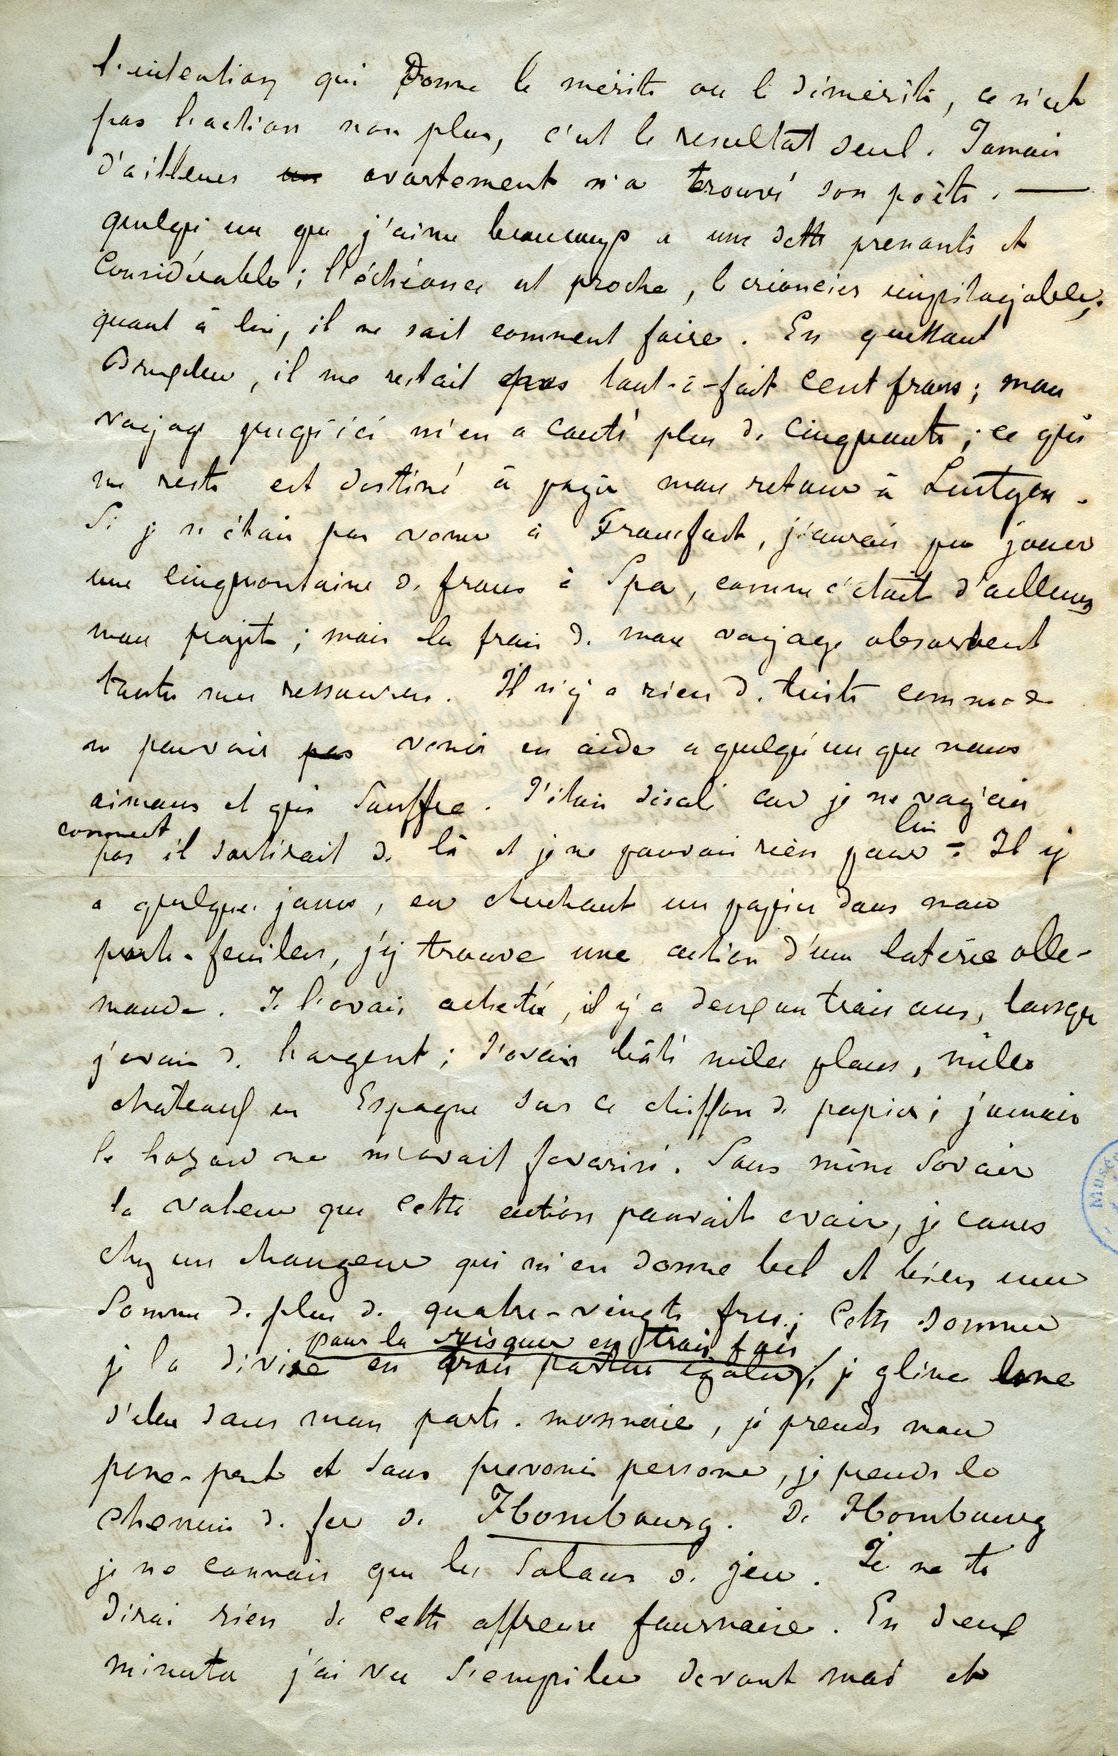 l'intention qui donne le mérite ou le démérite, ce n'est
pas l'action non plus, c'est le resultat seul. Jamais
d'ailleurs un avortement n'a trouvé son poète. —
quelqu'un que j'aime beaucoup a une dette pressante et
Considérable ; l'échéance est proche, le créancier impitoyable,
quant à lui, il ne sait comment faire. En quittant
il me restait pas tout-à-fait cent francs ; mon
voyage jusqu'ici m'en a couté plus de cinquante ; ce qui
me reste est destiné à payer mon retour à
Si je n'étais pas venu à Francfort, j'aurais pu jouer
une cinquantaine de francs à Spa, comme c'était d'ailleurs
mon projet ; mais les frais de mon voyage absorbent
toutes mes ressources. Il n'y a rien de triste comme de
ne pouvoir pas venir en aide a quelqu'un que nous
aimons et qui souffre. J'étais désolé car je ne voyais
comment
lui
pas il sortirait de là et je ne pouvais rien pour - Il y
a quelques jours, en cherchant un papier dans mon
porte-feuilles, j'y trouve une action d'une loterie alle-
mande. Je l'avais achetée, il y a deux ou trois ans, lorsque
j'avais de l'argent ; J'avais bâti milles plans, milles
châteaux en Espagne sur ce chiffon de papier ; jamais
le hazard ne m'avait favorisé. Sans même savoir
la valeur que cette action pouvait avoir, je cours
chez un changeur qui m'en donne bel et bien une
Somme de plus de quatre-vingts frcs ; Cette somme
pour la risquer en trois fois
je la divise en trois parties égales, je glisse une
d'elles dans mon porte-monnaie, je prends mon
et sans prevenir persone, je prends le
chemin de fer de Hombourg. De Hombourg
je ne connais que les salons de jeu. Je ne te
dirai rien de cette affreuse fournaise. En deux
minutes j'ai vu s'empiler devant moi et